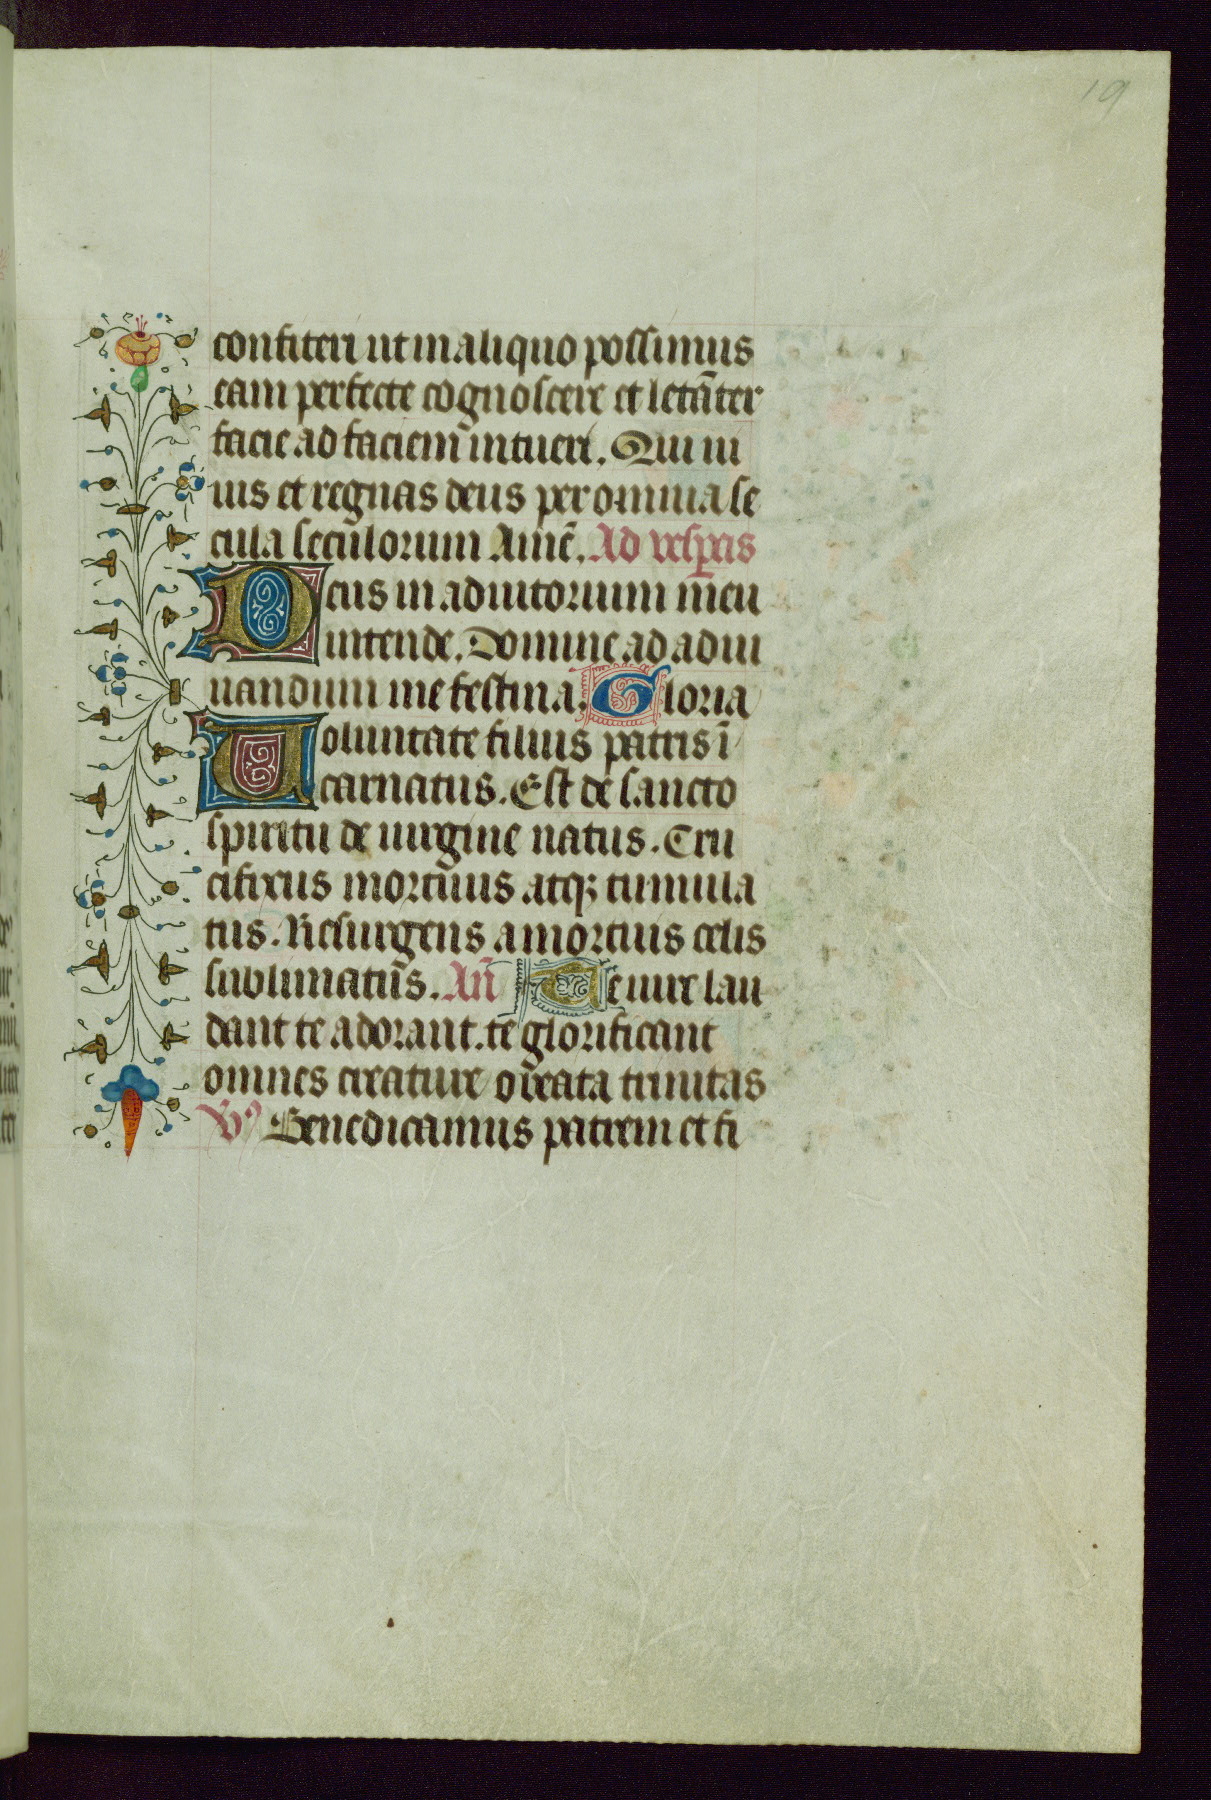 19
confiteri ut in aliquo possimus
eam perfecte cognoscere et letãter
facie ad faciem intueri. Qui ui
uis et regnas deus per omnia se
cula seculorum Amẽ. Ad vesperas
Deus in adiutorium meu
intende. Domine ad adiu
uandum me festina. Gloria
Uoluntate filius patris ĩ
carnatus. Est de sancto
spiritu de uirgine natus. Cru
cifixus mortuus atqꝫ tumula
tus. Resurgens a mortuis celis
sublimatus. Añ Te iure lau
dant te adorant. te glorificant
omnes creature o beata trinitas
V9 Benedicamus patrem et fi